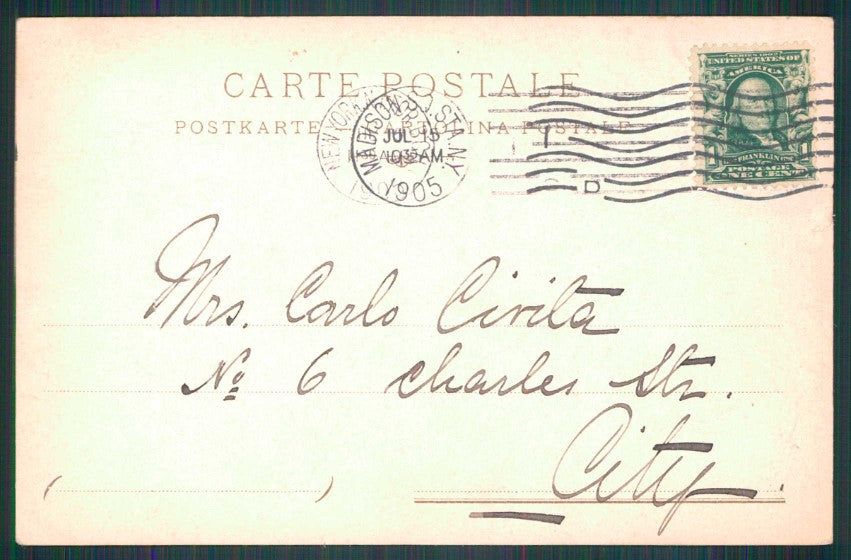 CARTE POSTALE
POSTKARTE
POSTALE
NEW YORK
MADISON SQ. STA. N.Y.
JUL 15
10 32 AM
1905
D
SERIES 1902
UNITED STATES OF
AMERICA
FRANKLIN
1 1
POSTAGE
ONE CENT
Mrs. Carlo Civita
No 6 Charles Str.
City.
( )